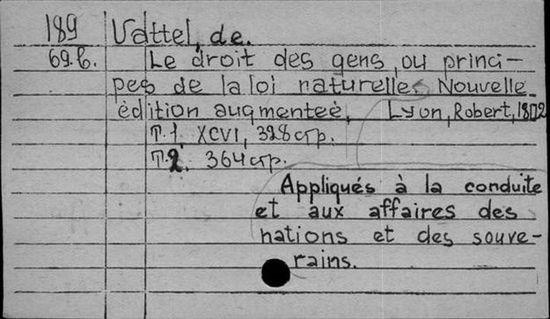 189 Vattel, de.
69.б. Le droit des gens, ou princi-
pes de la loi naturelle. Nouvelle
édition augmenteé, Lyon, Robert, 1802
Т.1. XCVI, 328 стр.
Т.2. 364 стр.
Appliqués à la conduite
et aux affaires des
nations et des souve-
rains.